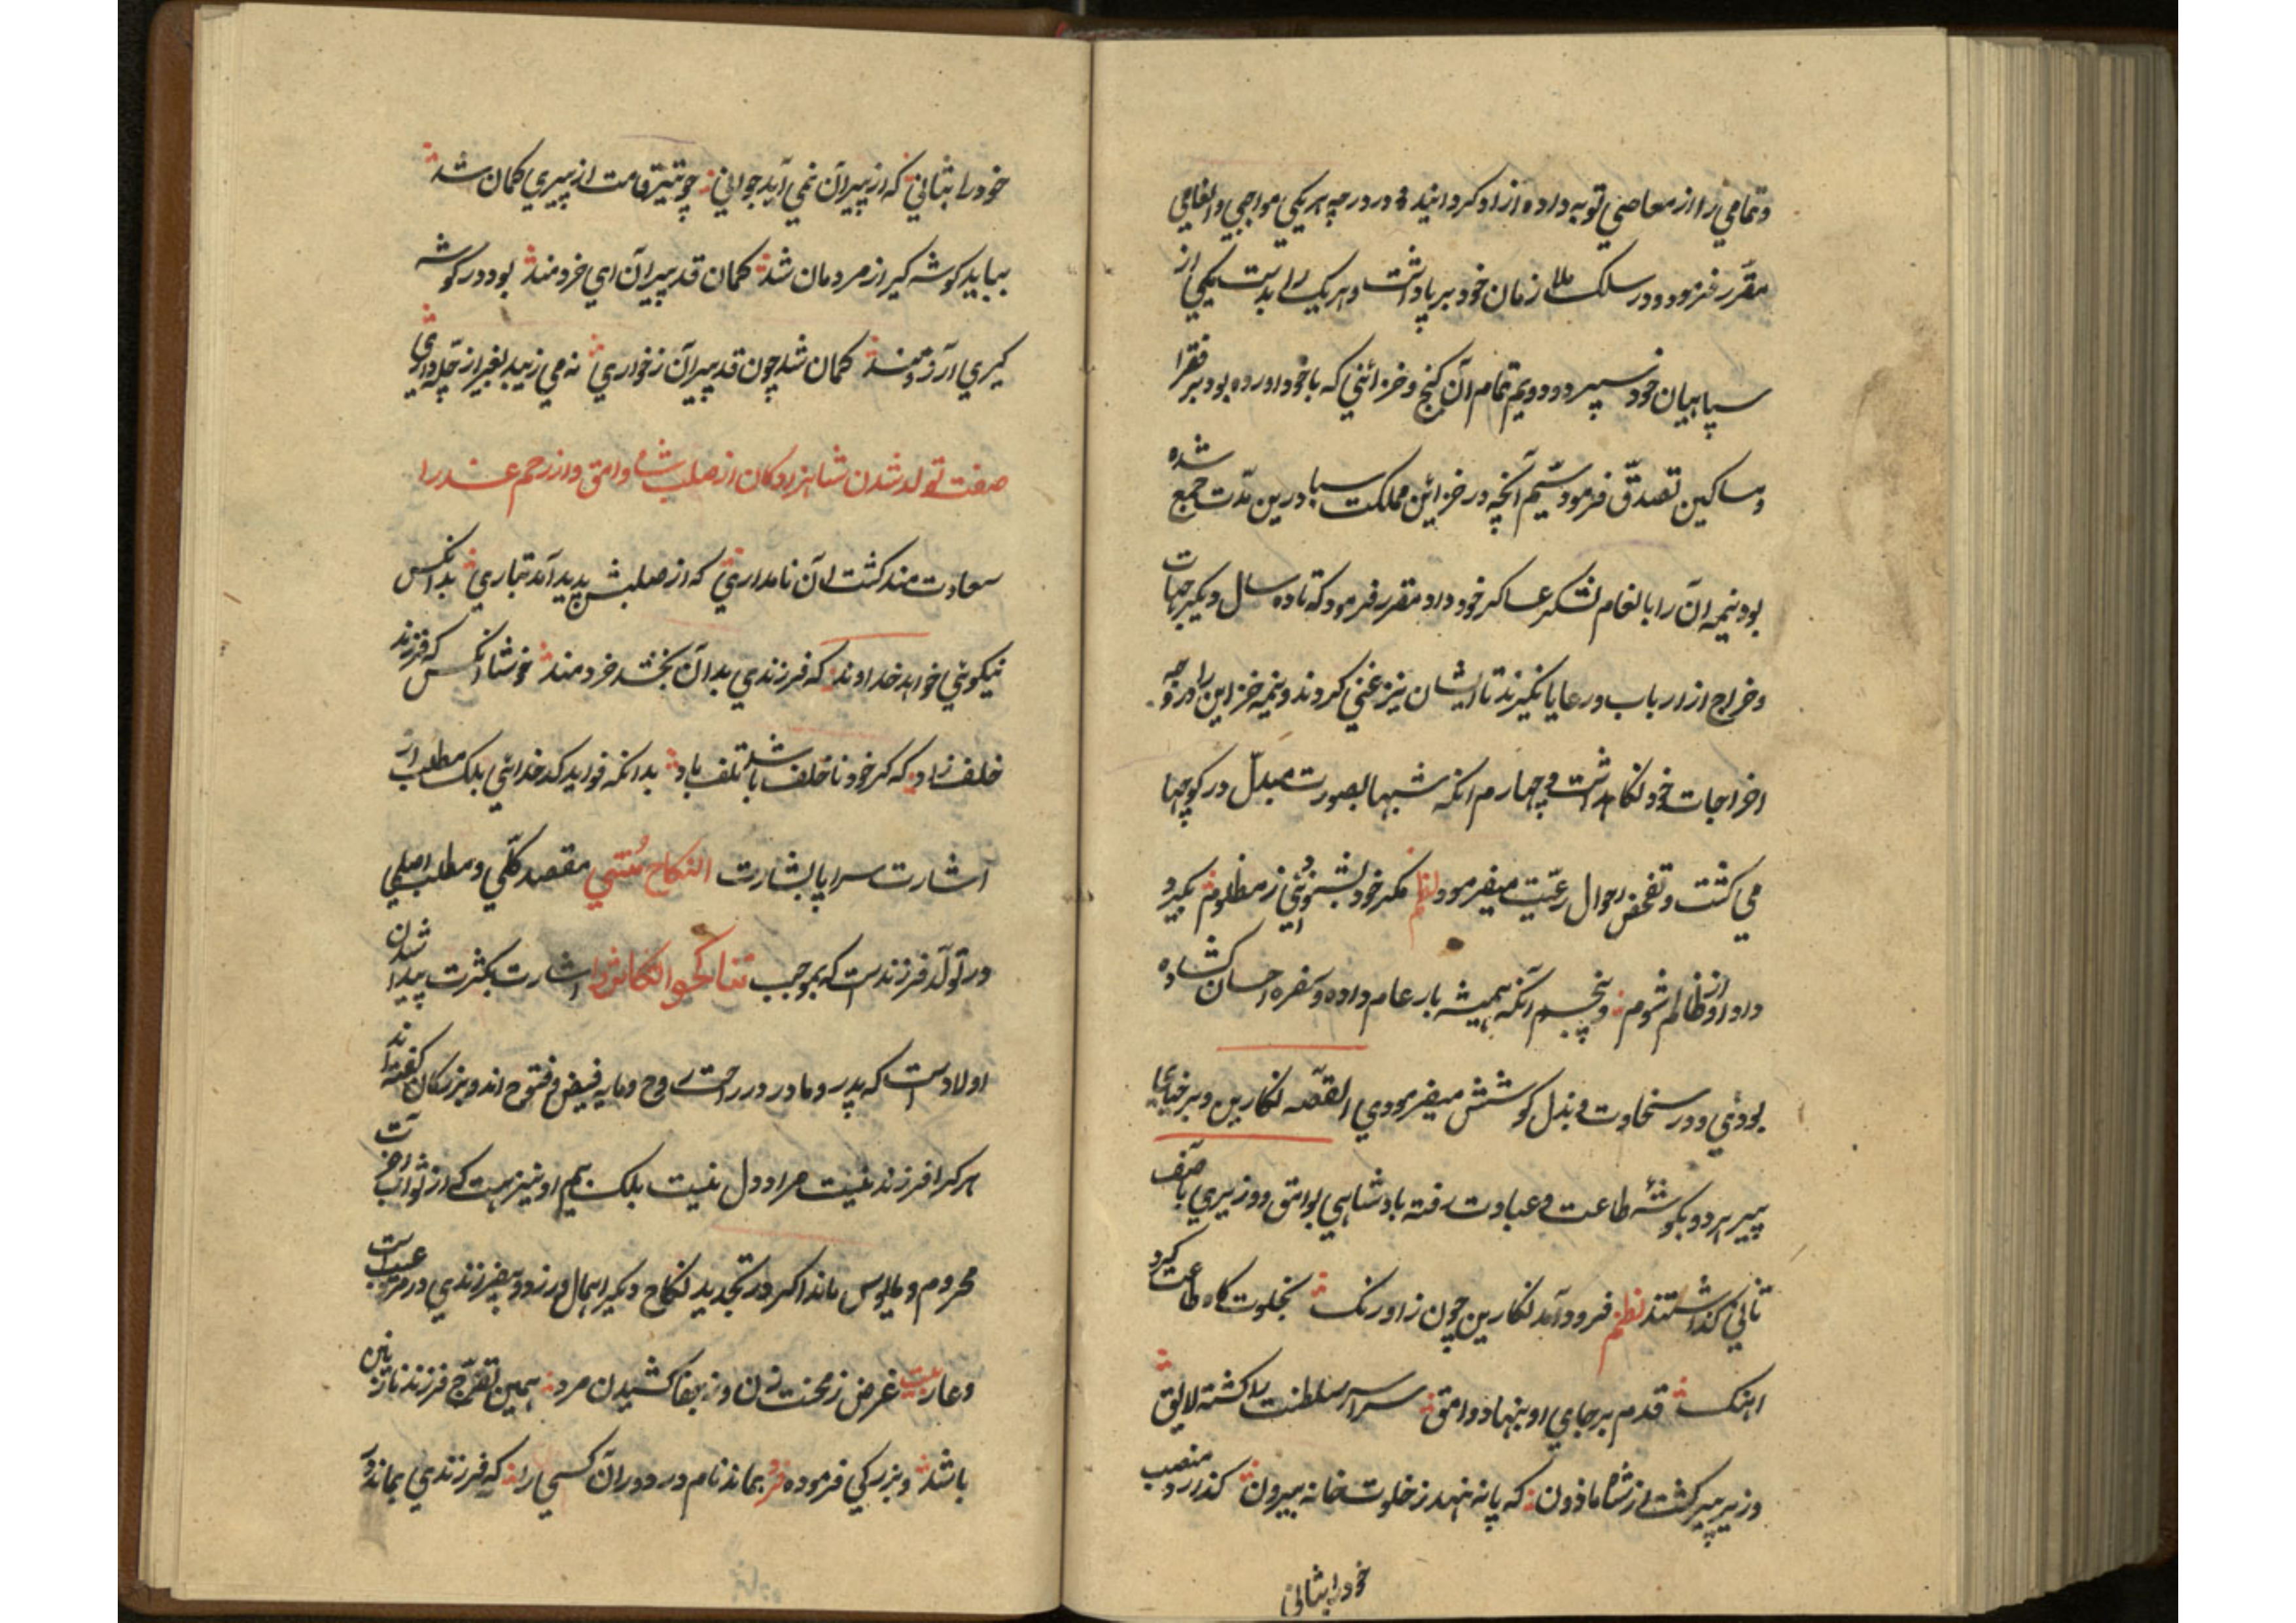 وتمامی را از معاصی توبه داده ازاد کردانید و در درجه هر یکی مواجبی وانعامی
مقرّر فرمود و در سلک ملازمان خود برپا داشت و هر یک را بدست یکی از
سپاهیان خود سپرد و دویم تمام آن کنج و خزائنی که با خود اورده بود بر فقرا
و مساکین تصدّق فرمود سیّم آنچه در خزاین مملکت سبا درین مدّت جمع شده
بود نیمه ان را بانعام لشکر عساکر خود داد و مقرر فرمود که تا ده سال دیکر جهات
وخراج از ارباب و رعایا نکیرند تا ایشان نیز غنی کردند و نیمه خزاین را در وجه
اخراجات خود نکاهداشت و چهارم انکه شبها بصورت مبدّل در کوچها
می کشت و تفحّص احوال رعیّت میفرمود نظم مکر خود بشنود ز مظلوم بکیرد
داد او از ظالم شوم و پنجم آنکه همیشه بار عام داده و سفره احسان کشاده
بودی و در سخاوت و بذل کوشش میفرمودی القصّه نکارین و برخیائیا
پیر هر دو بکوشهٔ طاعت و عبادت رفته بادشاهی بوامق و وزیری بآصف
ثانی کذاشتند نظم فرود آمد نکارین چون ز اورنک بخلوت کاه طاعت کرد
اهنک قدم بر جای او بنهاد وامق سراسر سلطنت را کشته لایق
وزیر پیر کشت از شاه ماذون که پا ننهد ز خلوت خانه بیرون کذارد منصب
خود را بثانی
خود را بثانی که از پیران نمی آید جوانی چو تیر قامت از پیری کمان شد
بباید کوشه کیر از مردمان شد کمان قد پیران ای خردمند بود در کوشه
کیری آرزومند کمان شد چون قد پیران ز خواری نه می زیبد بغیر از چلّه داری
صفت تولد شدن شاهزادکان از صلب شاه وامق و از رحم عذرا
سعادت مند کشت ان نامداری که از صلبش پدید آمد تباری بدانکس
نیکوئی خواهد خداوند که فرزندی بدان بخشد خردمند خوشا انکس که فرزند
خلف زاد که کر خود ناخلف باشد تلف باد بدانکه فواید کدخدائی بلک مطلب از
اشارت سراپا بشارت النکاح سُنّتی مقصد کلّی و مطلب اصلی
در تولّد فرزندست که بموجب تناکحوا تکاثروا اشارت بکثرت پیدا شدن
اولادست که پدر و مادر در راحت روح و مایه فیض و فتوح اند و بزرکان کفته اند
هر کرا فرزند نیست مراد دل نیست بلک بیم او نیز هست که از ثواب اخرت
محروم و مایوس ماند اکر در تجدید نکاح دیکر اهمال ورزد و بیفرزندی در مرد عیب است
وعار بیت غرض ز محنت زن و ز جفا کشیدن مرد همین تفرّج فرزند نازنین
باشد و بزرکی فرموده فرد بماند نام در دوران کسی را که فرزندی بماند